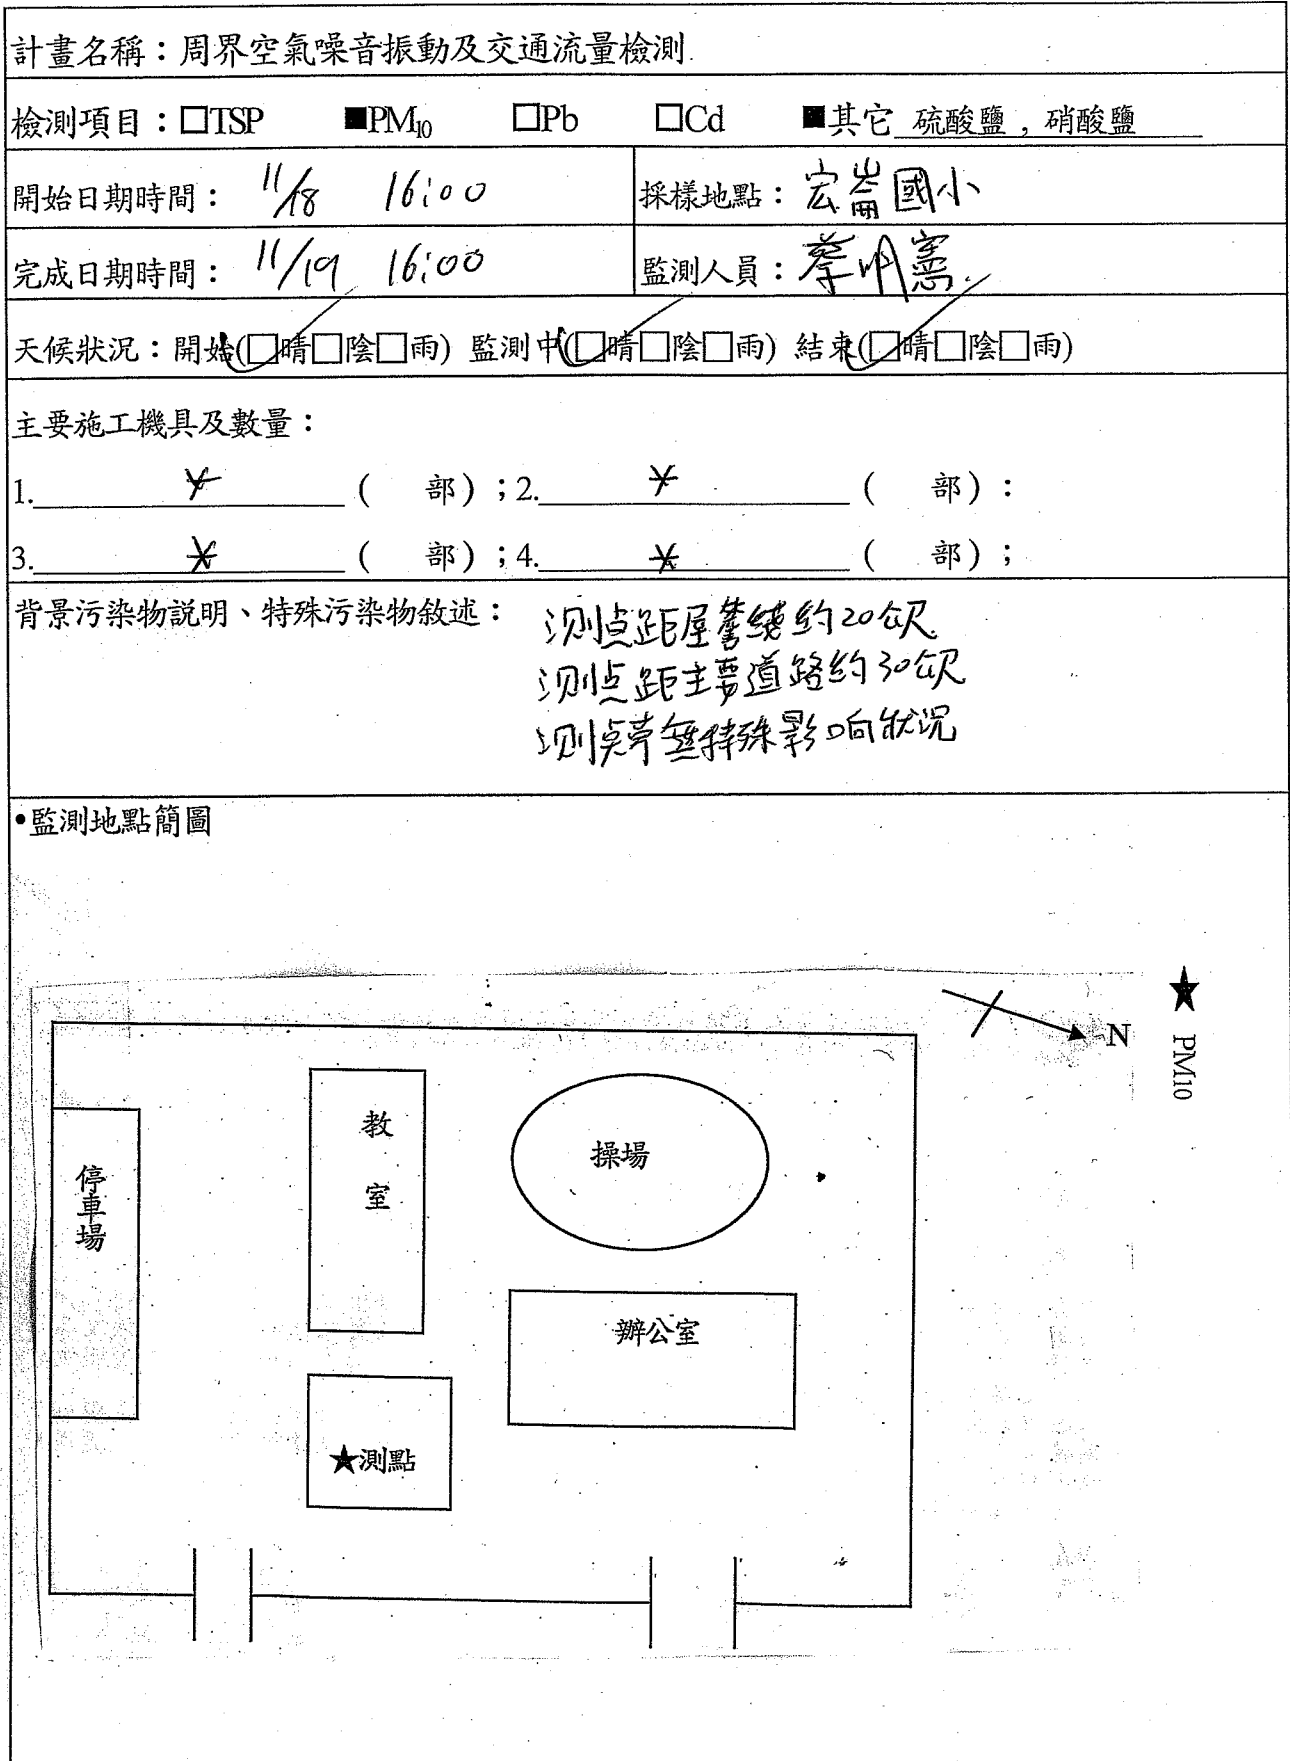 計畫名稱：周界空氣噪音振動及交通流量檢測
檢測項目：□TSP ■PM10 □Pb □Cd ■其它 硫酸鹽，硝酸鹽
開始日期時間： 11/18 16:00 採樣地點：宏崙國小
完成日期時間： 11/19 16:00 監測人員：蔡明憲
天候狀況：開始(☑晴□陰□雨) 監測中(☑晴□陰□雨) 結束(☑晴□陰□雨)
主要施工機具及數量：
1. ( 部)；2. ( 部)：
3. ( 部)；4. ( 部)；
背景污染物說明、特殊污染物敘述： 測点距屋簷緣約20公尺
測点距主要道路約30公尺
測点旁無特殊影响狀況
•監測地點簡圖
N
★ PM10
教室
操場
停車場
辦公室
★測點